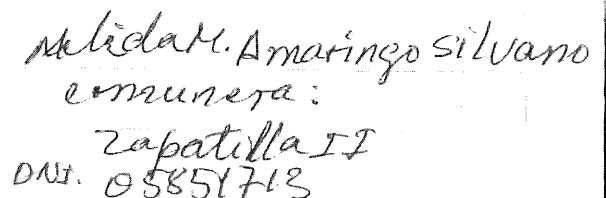 Melida M. Amaringo Silvano
comunera:
Zapatilla II
DNI. 05851713